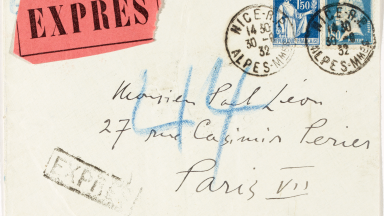 EXPRÈS
NICE-R.P.
14 30
30 -8
32
ALPES-MMES
1F50
NICE-R.P.
30
32
ALPES-MMES
44
Monsieur Paul Léon
27 rue Casimir Perier
EXPRES
Paris VII